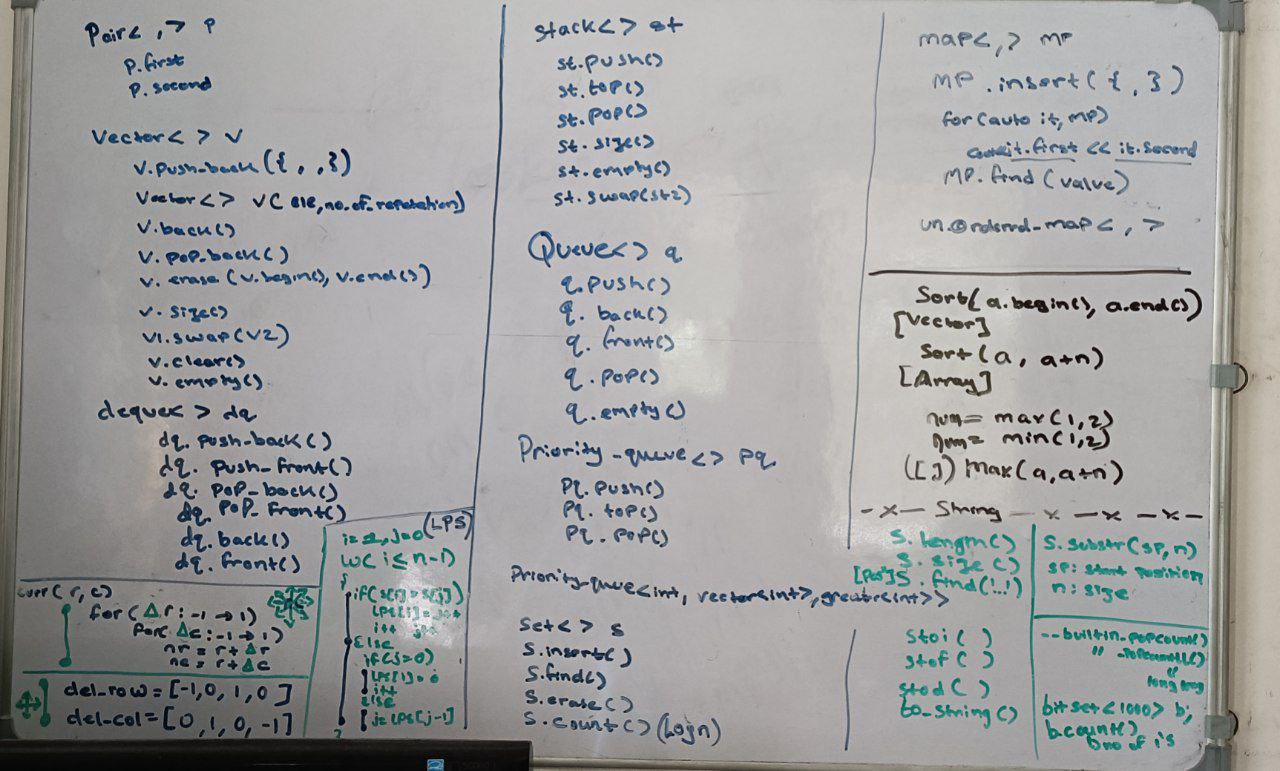 Pair< , > P
P.first
P.second
Vector< > V
V.push-back({ , , })
Vector< > V( ele, no.of-repetation)
V.back()
V.pop-back()
V.erase (V.begin(), V.end())
V.size()
V1.swap(V2)
V.clear()
V.empty()
deque< > dq
dq.push-back()
dq.push-front()
dq.pop-back()
dq.pop-front()
dq.back()
dq.front()
curr(r,c)
for(Δr:-1→1)
for(Δc:-1→1)
nr = r+Δr
nc = r+Δc
del-row=[-1,0,1,0]
del-col=[0,1,0,-1]
(LPS)
i=1,j=0
w( i ≤ n-1)
{
if(s[i]=s[j])
LPS[i]=j++
i++
j++
Else
if(j=0)
LPS[i]=0
i++
else
j=LPS[j-1]
}
Stack< > st
st.push()
st.top()
st.pop()
st.size()
st.empty()
st.swap(st2)
Queue< > q
q.push()
q.back()
q.front()
q.pop()
q.empty()
Priority-queue< > pq
Pq.push()
Pq.top()
Pq.pop()
Priority-queue<int, vector<int>,greater<int>>
Set< > s
S.insert()
S.find()
S.erase()
S.count() (logn)
map< , > MP
MP.insert({ , })
for(auto it, mp)
cout<<it.first << it.second
MP.find(value)
un.ordered-map< , >
Sort(a.begin(), a.end())
[Vector]
Sort(a, a+n)
[Array]
num= max(1,2)
num= min(1,2)
([ ]) max(a,a+n)
-x- String -x -x -x-
S.length()
S.size()
[Pos] S.find('...')
S.substr(sp,n)
sp: start position
n: size
stoi( )
stof( )
stod( )
to-string()
--builtin-popcount()
" -popcountll()
"
long long
bitset<1000> b;
b.count()
no of 1's